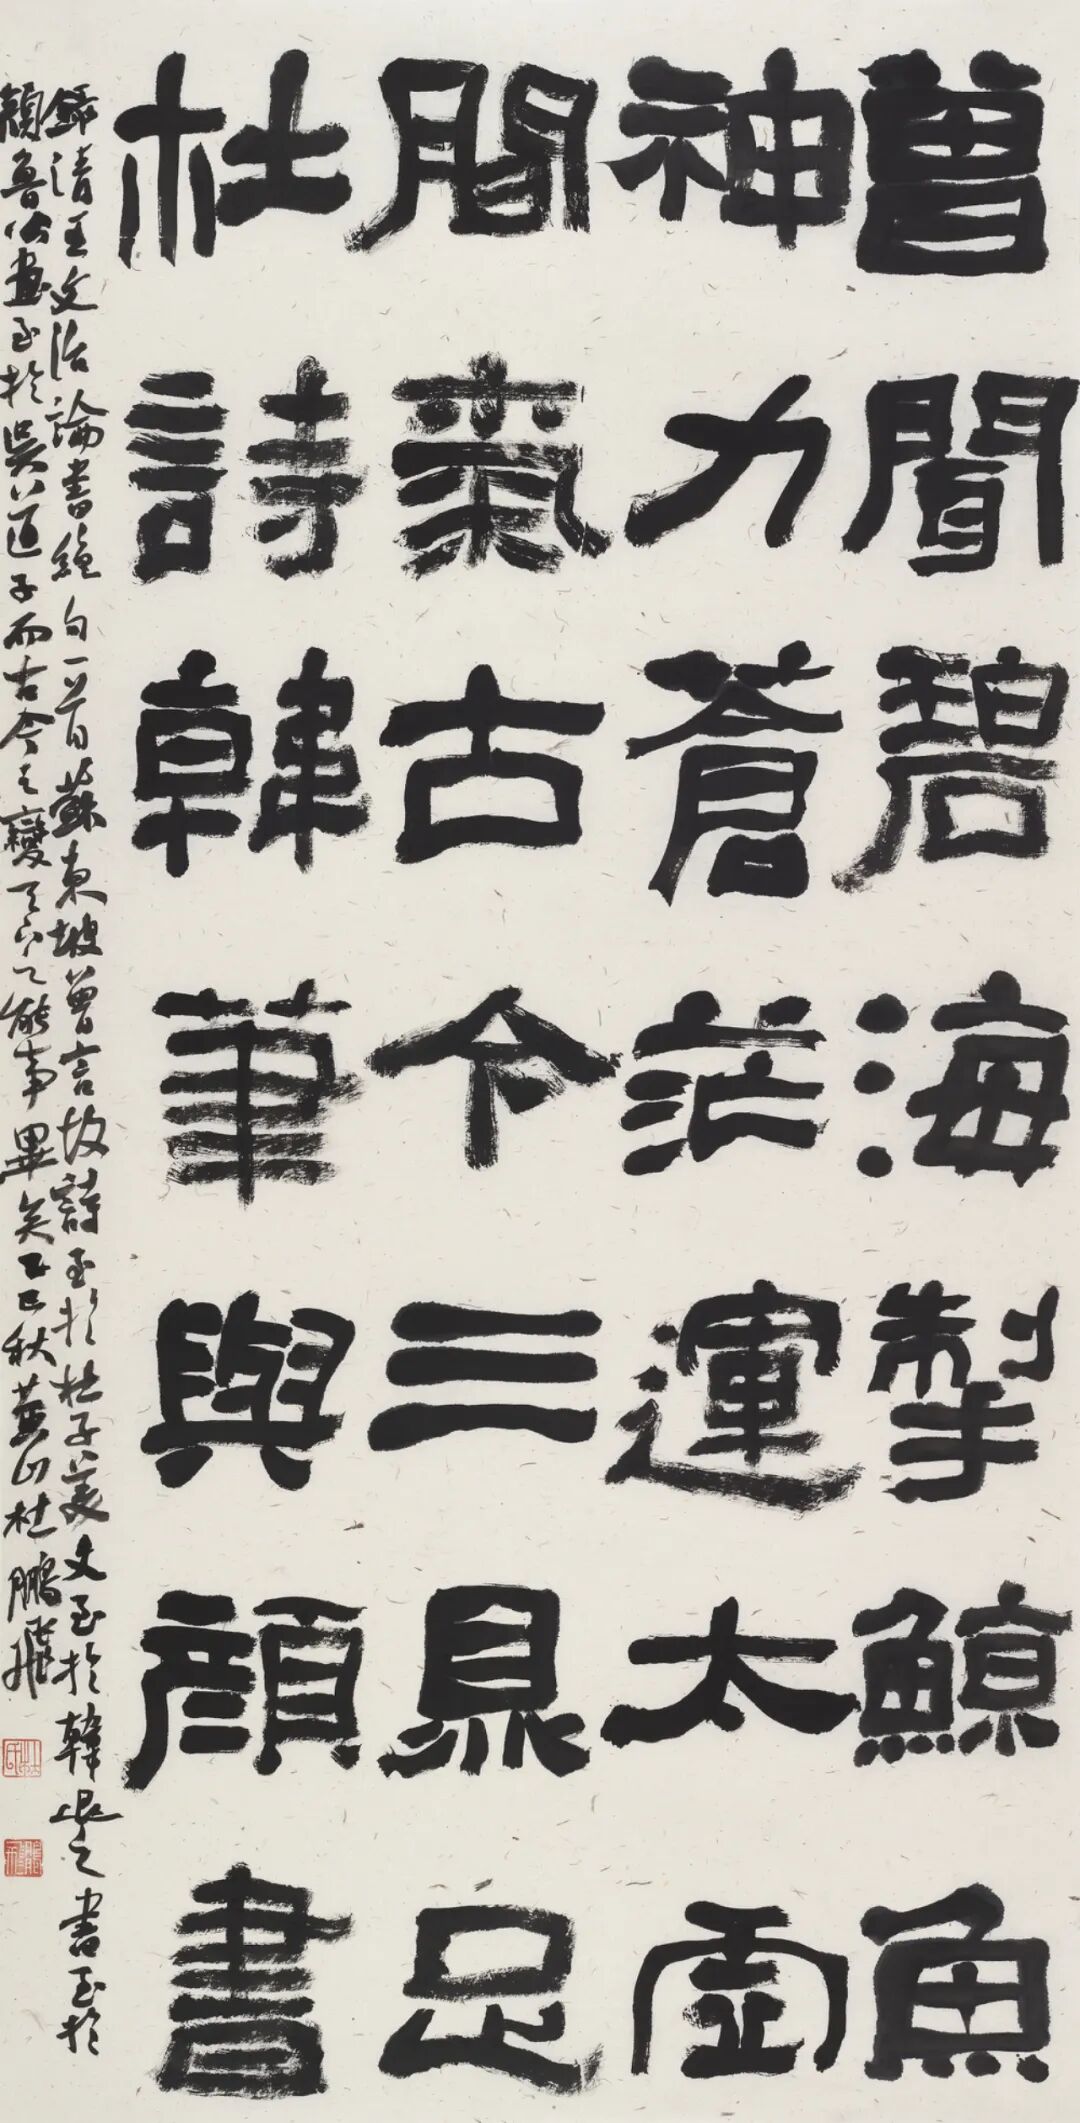 曾聞碧海掣鯨魚
神力蒼茫運太虛
間氣古今三鼎足
杜詩韓筆與顏書
錄清王文治論書絕句一首蘇東坡曾言故詩至於杜子美文至於韓退之書至於
顏魯公畫至於吳道子而古今之變天下之能事畢矣乙巳秋燕山杜鵬飛